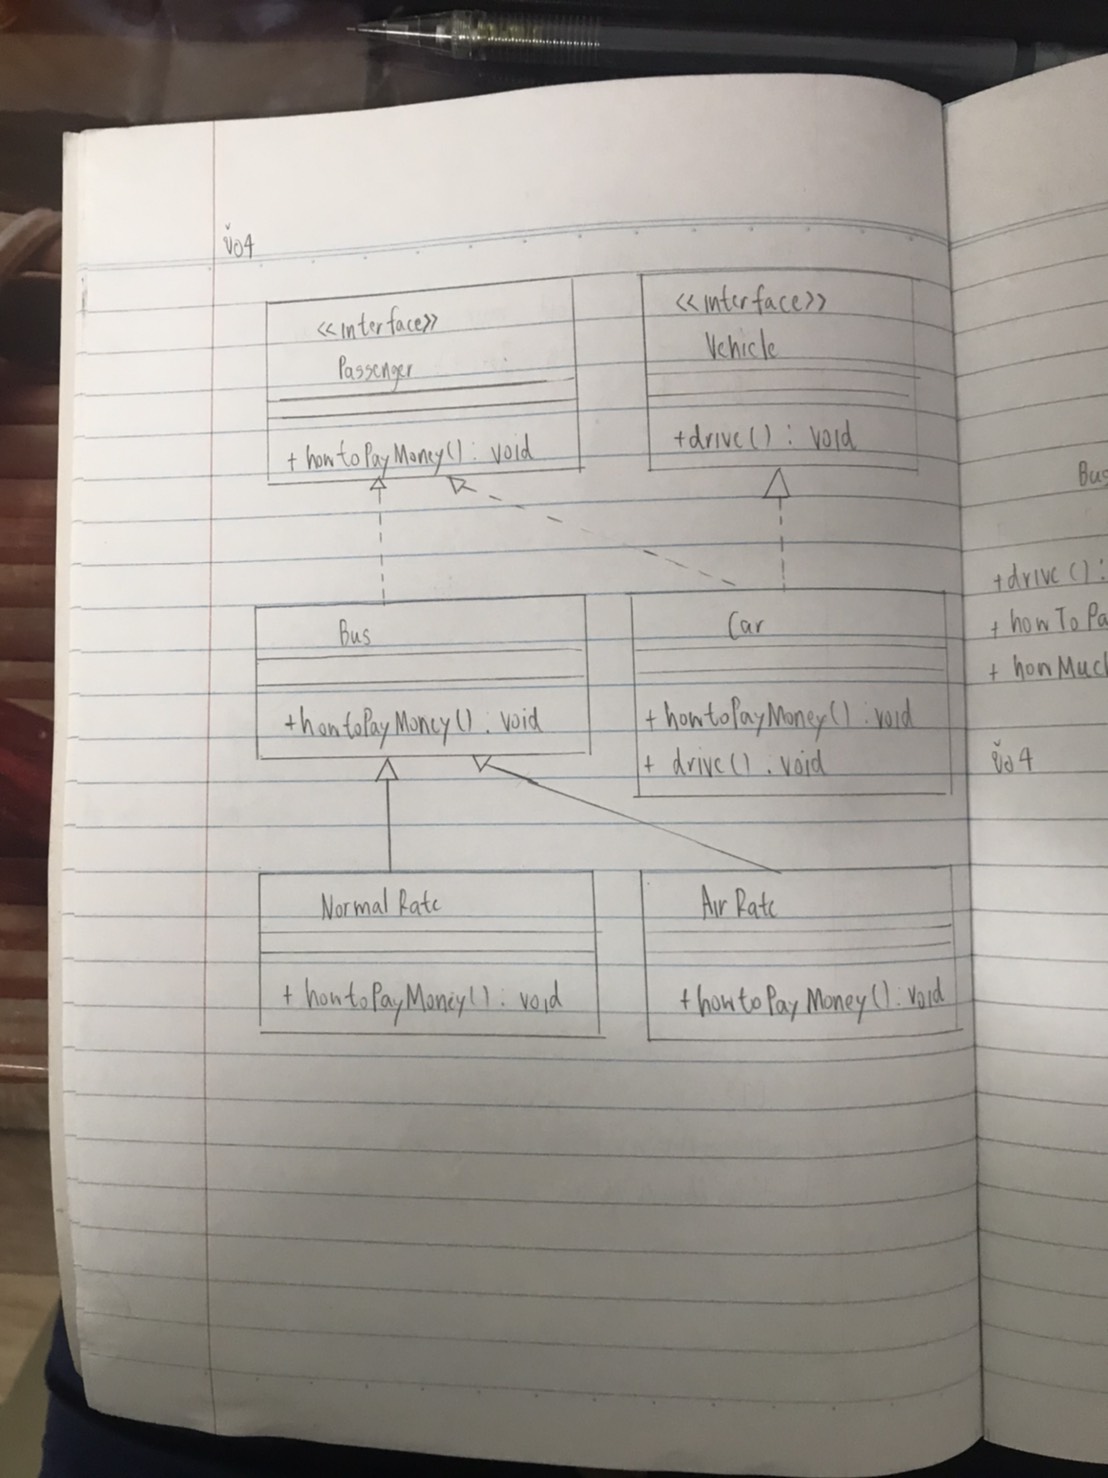 ข้อ4
<<interface>>
Passenger
+ howtoPayMoney() : void
<<interface>>
Vehicle
+drive() : void
Bus
+howtoPayMoney() : void
Car
+ howtoPayMoney() : void
+ drive() : void
Normal Rate
+ howtoPayMoney() : void
Air Rate
+howtoPayMoney() : void
Bus
+drive() :
+ howToPa
+ howMuch
ข้อ4